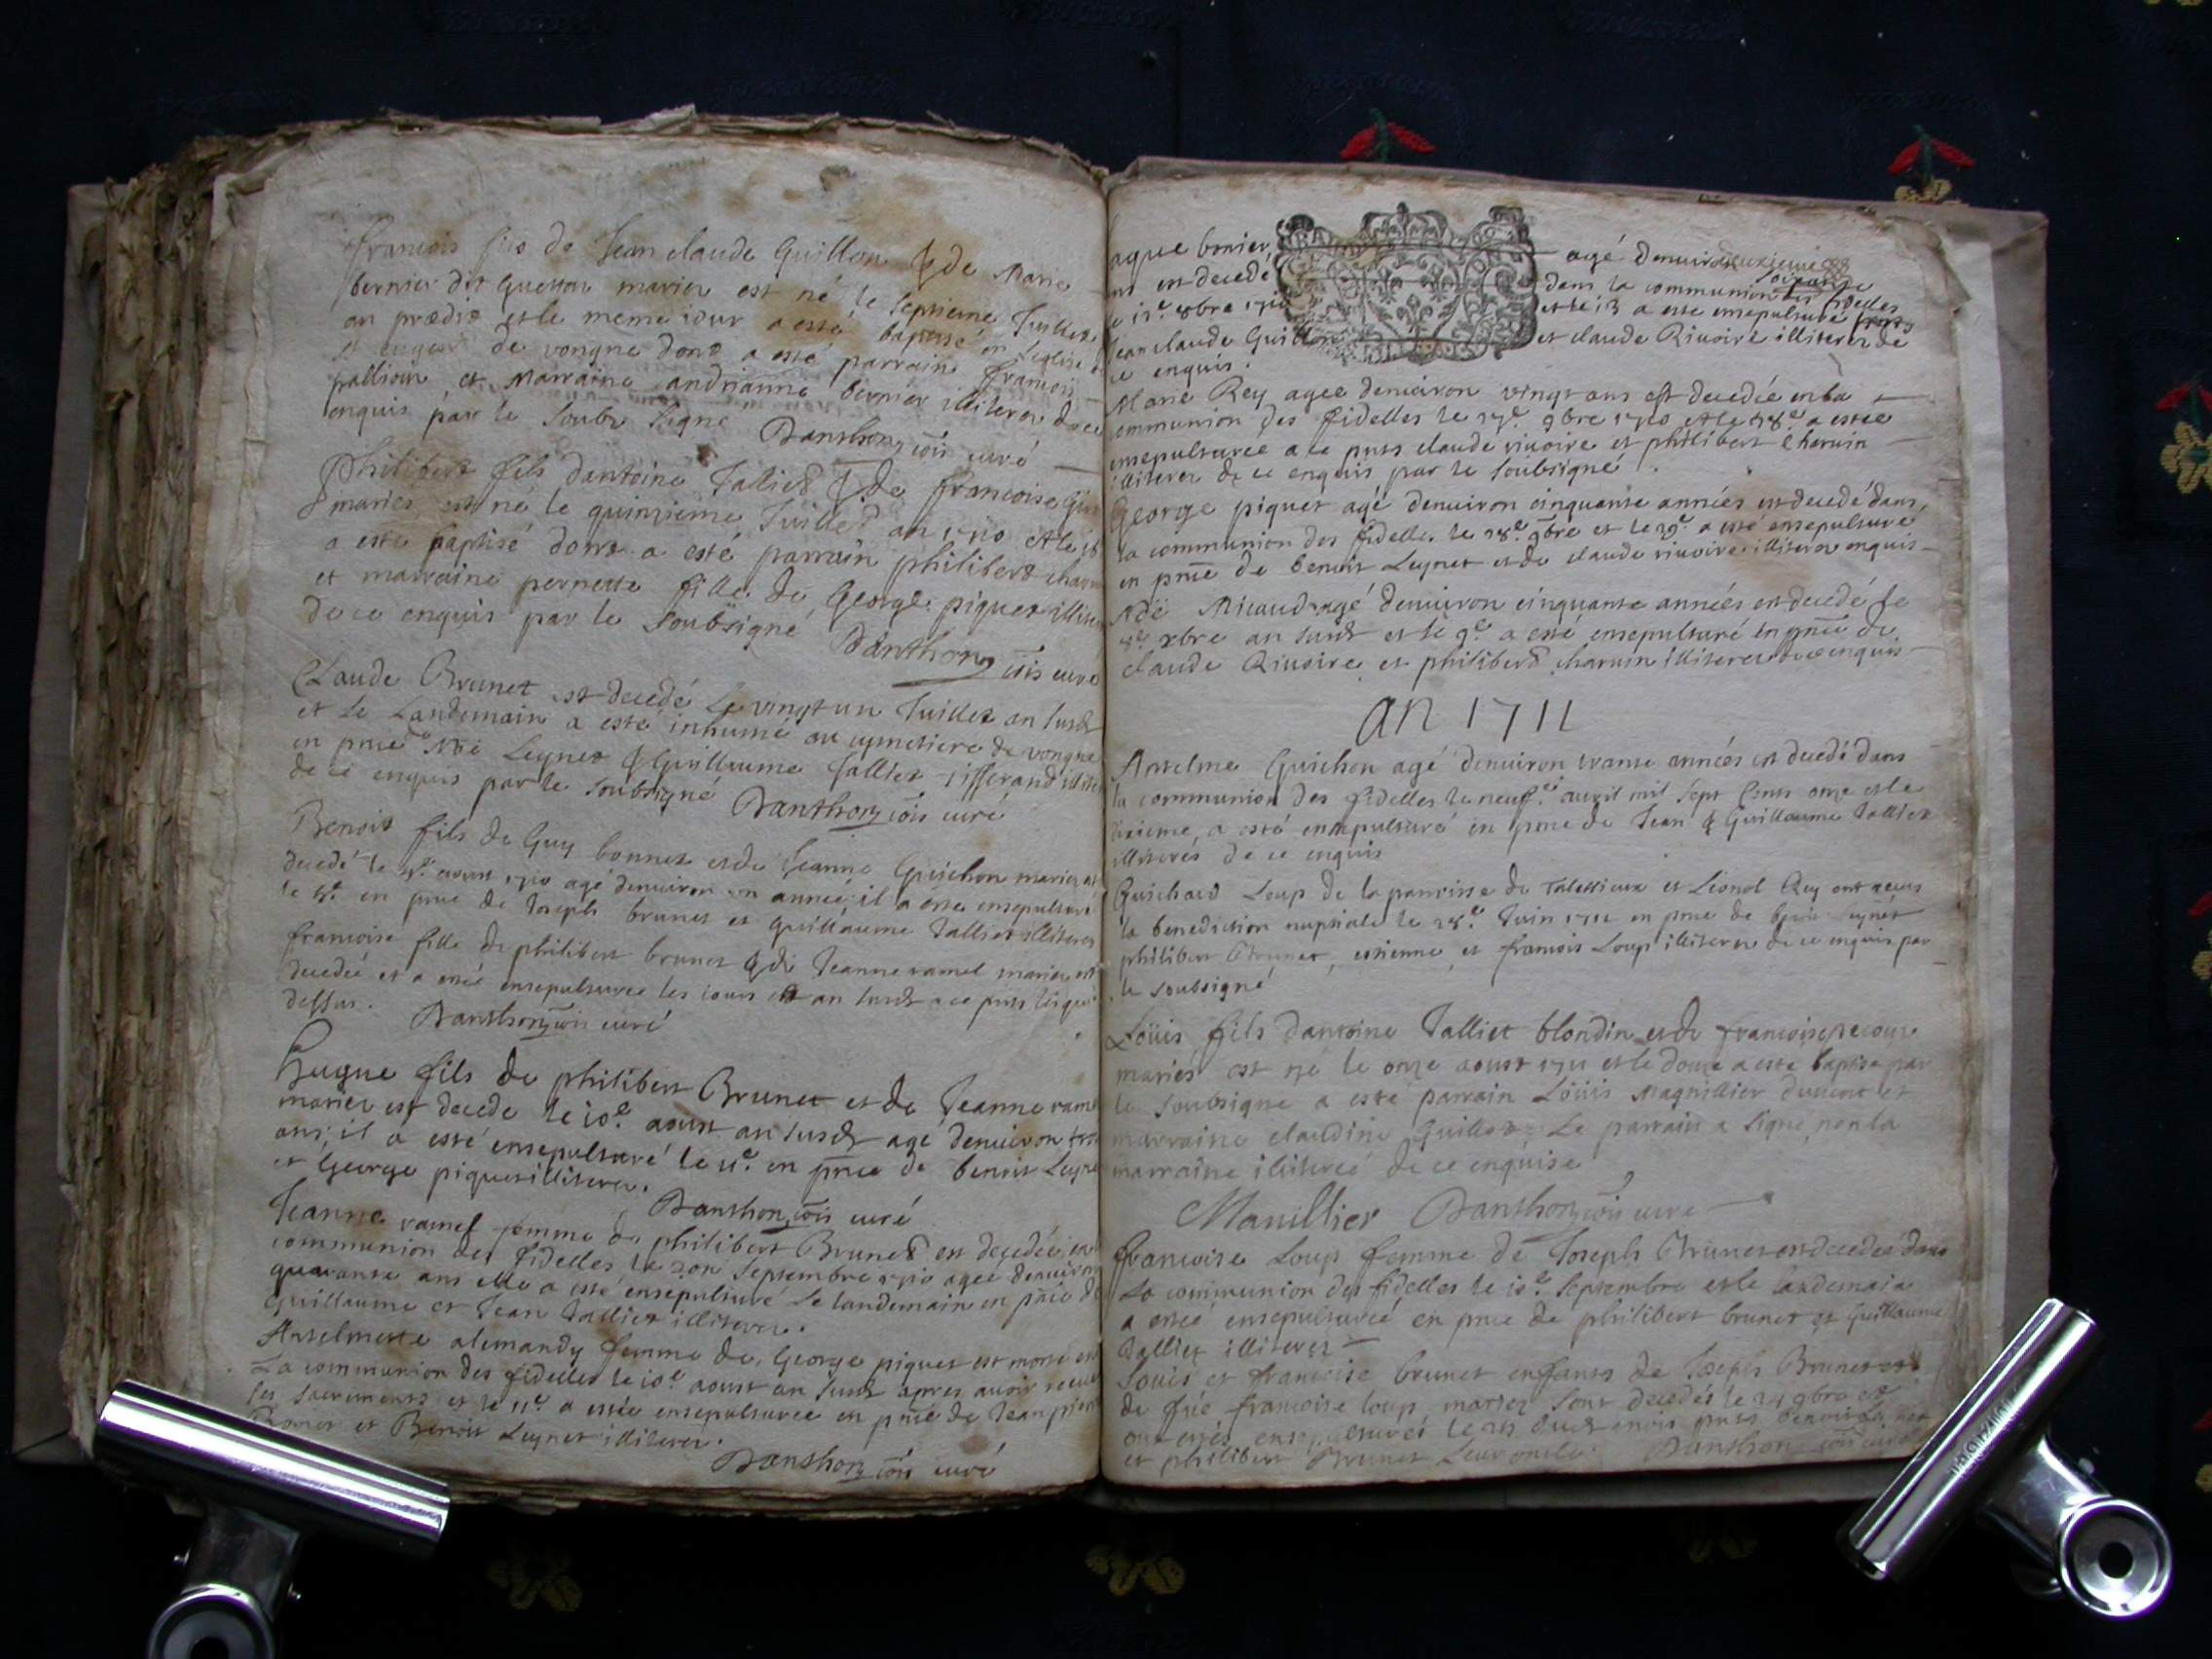 francois fils de Jean claude Guillon & de Marie
bernier dit Guetton mariez est né le septieme Juillet
an prædit et le meme iour a esté baptisé en l'eglise
de vongne dont a esté parrain francois
pallioux et Marraine andrianne bernier illiterez de ce
enquis par le soubz signé Danthon curé
Philibert fils dantoine Talliet & de francoise
mariés est né le quinzieme Juillet an 1710 et le 18
a esté baptisé dont a esté parrain philibert
et marraine pernette fille de George piquet
de ce enquis par le soubsigné Danthon curé
Claude Brunet est decedé le vingt un Juillet an susd
et le Landemain a esté inhumé au cymetiere de vongne
en pnce Leynet & Guillaume Talliet
de ce enquis par le soubsigné Danthon curé
Benoit fils de Guy bonnet et de Jeanne Guichon mariez est
decedé le aoust 1710 agé denuiron un année il a esté ensepulturé
le en pnce de Joseph brunet et guillaume Talliet illiterez
francoise fille de philibert brunet & de Jeanne ramel mariez est
decedée et a estée ensepulturee les iours et an susd
dessus. Danthon curé
Hugue fils de philibert Brunet et de Jeanne ramel
mariez est decede le 10e aoust an susd agé denuiron
ans, il a esté ensepulturé le 11e en pnce de benoit Leynet
et George piquet illiterez.
Danthon curé
Jeanne ramel femme de philibert Brunet est decedée en
communion des fidelles le Septembre 1710 agee denuiron
quarante ans elle a esté ensepulturé Le landemain en pnce de
Guillaume et Jean Talliet illiterez.
Anselmette alemandy femme de George piquet est morte en
La communion des fidelles le 10e aoust an susd apres auoir receu
les sacrements et le 11e a estée ensepulturee en pnce de Jean pierre
Bonet et Benoit Leynet illiterez.
Danthon curé
agé denuiron
est decedé dans la communion des fidelles
8bre 1710 et le 13 a este ensepulturé
Jean claude Guillon et claude Riuoire illiterez de
ce enquis.
Marie Rey agee denuiron vingt ans est decedée en la
communion des fidelles le 17e 9bre 1710 et le 18e a estée
ensepulturee a ce pnts claude riuoire et philibert Charuin
illiterez de ce enquis par le soubsigné
George piquet agé denuiron cinquante années est decedé dans
la communion des fidelles le 28e 9bre et le 29e a esté ensepulturé
en pnce de benoit Leynet et de claude riuoire illiterez enquis
Micaud agé denuiron cinquante années est decedé le
8e xbre an susd et le 9e a esté ensepulturé en pnce de
claude Riuoire et philibert charuin illiterez de ce enquis
an 1711
Anselme Guichon agé denuiron trante années est decedé dans
la communion des fidelles le neufe auril mil sept Cents onze et le
dixieme a esté ensepulturé en pnce de Jean & Guillaume Talliet
illiterés de ce enquis
Guichard Loup de la parroisse de Talissieux et Rey ont receus
la benediction nuptiale le 28e Juin 1711 en pnce de Leynet
philibert Brunet, estienne et francois Loup illiterez de ce enquis par
le soubsigné
Loüis fils dantoine Talliet blondin et de francoise
mariés est né le onze aoust 1711 et le douze a esté baptisé par
le soubsigne a esté parrain Loüis Magnillier et
marraine claudine Guillot Le parrain a signé non la
marraine illiterée de ce enquise
Manillier Danthon curé
francoise Loup femme de Joseph Brunet est decedée dans
La communion des fidelles le 10e Septembre et le landemain
a estée ensepulturée en pnce de philibert brunet et Guillaume
Talliet illiterez
Louis et francoise brunet enfants de Joseph Brunet et
de francoise loup mariez sont decedés le 24 9bre et
ont estés ensepulturés le 25 dud mois pnts benoit Leynet
et philibert Brunet Leur oncle. Danthon curé